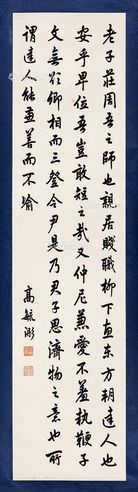 老子莊周吾之師也親居賤職柳下惠東方朔達人也
安乎卑位吾豈敢短之哉又仲尼兼愛不羞執鞭子
文無欲卿相而三登令尹是乃君子思濟物之意也所
謂達人能兼善而不渝
高毓浵